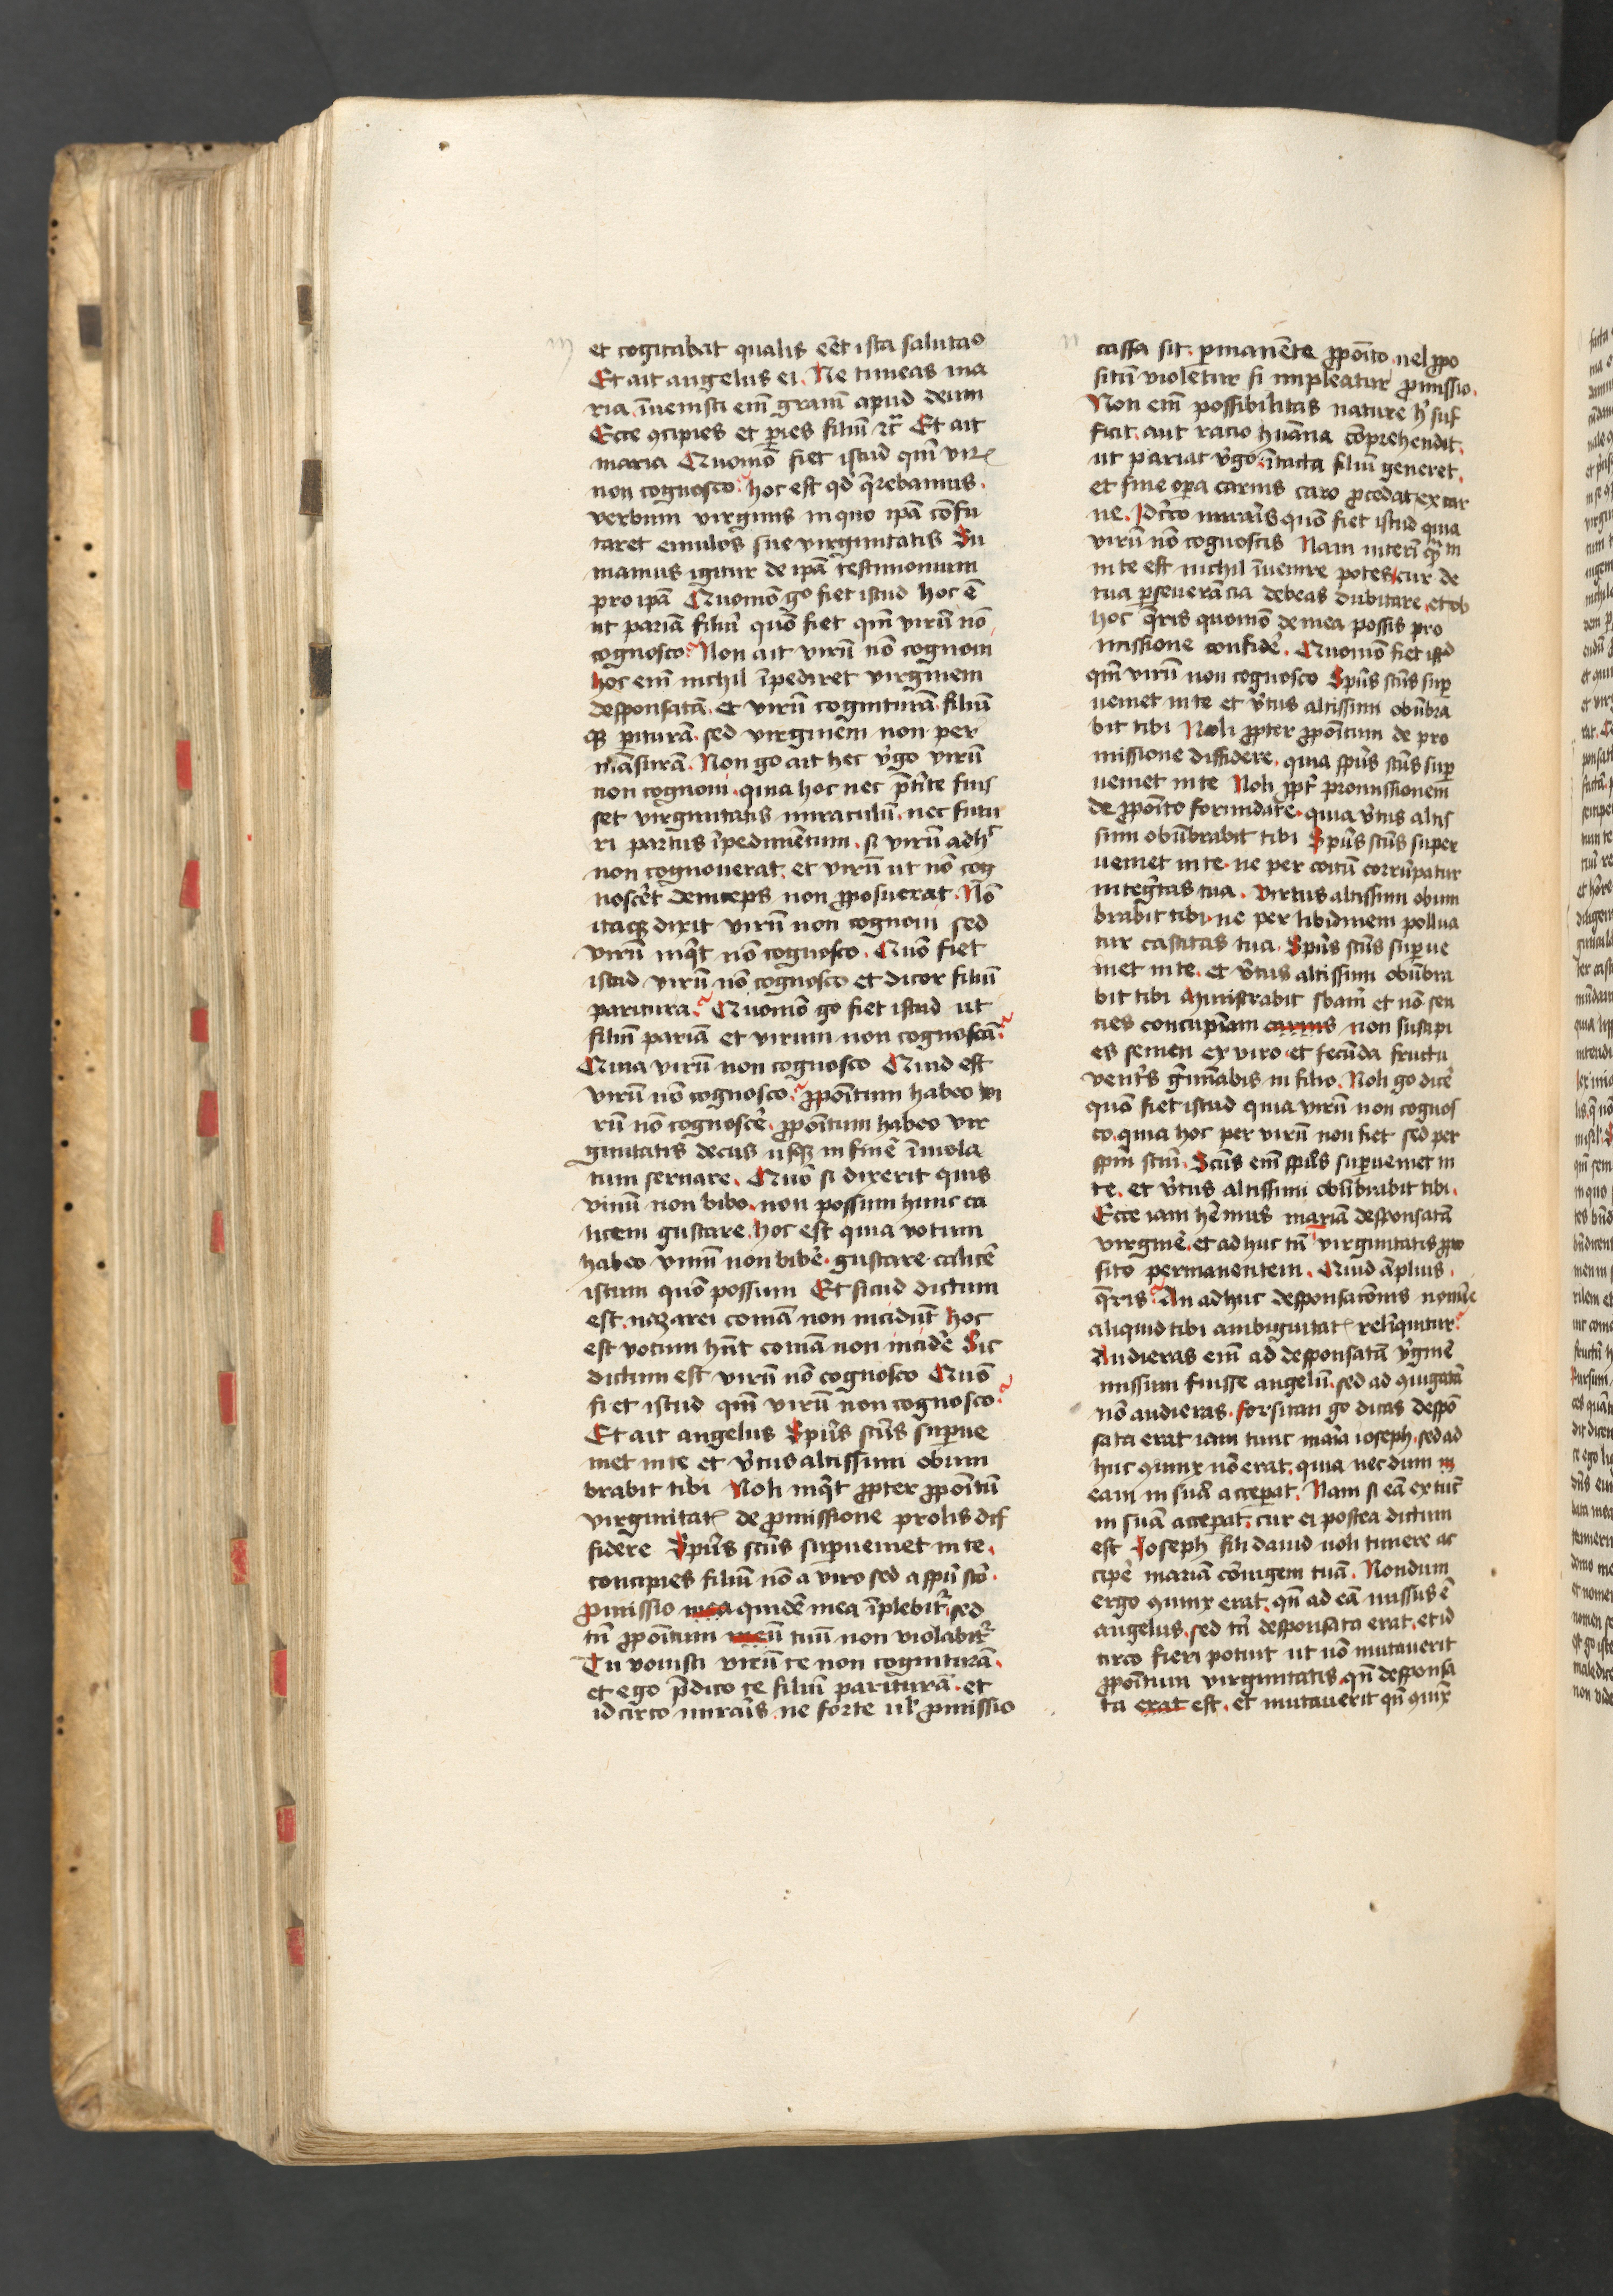 et cogitabat qualis eēt ista salutaᵒ
Et ait angelus ei. Ne timeas ma
ria. īvenisti em̄ gratiā apud deum
Ecce ꝯcipies et ꝑies filiū ⁊c̄ Et ait
maria Quomō fiet istud qm̄ virū
non cognosco? hoc est qd̄ q̄rebamus.
verbum virginis in quo ip̄a confu
taret emulos sue virginitatis Su
mamus igitur de ip̄a testimonium
pro ipā Quomō g̊ fiet istud hoc ē
ut pariā filiū quō fiet qm̄ virū nō
cognosco? Non ait virū nō cognoui
hoc enī nichil īpediret virginem
desponsatā. et virū cognituram filiū
qꝫ ꝑituram. sed virginem non per
mansuram. Non g̊ ait hec v̓go virū
non cognoui. quia hoc nec p̄t̓ite fuis
set virginitatis miraculū. nec futu
ri partus īpedimētum. si virū adhᶜ
non cognouerat. et virū ut nō cog
nosc̓et deinceps non ꝓposuerat. Nō
itaqꝫ dixit virū non cognoui sed
virū inq̓t nō cognosco. Quō fiet
istud virū nō cognosco et dicor filiū
paritura? Quomō g̊ fiet istud ut
filiū pariā et virum non cognoscā?
Quia virū non cognosco Quid est
virū nō cognosco? ꝓpoītum habeo vi
rū nō cognosce᷑. ꝓpoītum habeo vir
ginitatis decus usqꝫ in finē īviola
tum seruare. Quō si dixerit quis
vinū non bibo. non possum hunc ca
licem gustare. hoc est quia votum
habeo vinū non bibe᷑. gustare calicē
istum quō possum Et sicud dictum
est. nazarei comā non incidūt hoc
est votum hn̄t comā non incide᷑ Sic
dictum est virū nō cognosco Quō
fiet istud qm̄ virū non cognosco?
Et ait angelus Sp̄us sc̄us suꝑue
niet in te et v̓tus altissimi obum
brabit tibi Noli inq̓t ꝓpter ꝓpoītū
virginitatꝭ de ꝓmissione prolis dif
fidere Sp̄us sc̄us suꝑueniet in te.
concipies filiū nō a viro sed a sp̄u sc̄o.
ꝓmissio mea quidē mea īplebit᷑ sed
tn̄ ꝓpoītum meū tuū non violabit᷑
Tu vouisti virū te non cognituram.
et ego p̄dico te filiū parituram. et
idcirco miraris. ne forte ul̓ ꝓmissio
cassa sit. ꝑmanēte ꝓpoīto. uel ꝓpo
sitū violetur si impleatur ꝓmissio.
Non em̄ possibilitas nature h̓ suf
ficit. aut racio humana comprehendit.
ut pariat v̓go. ītacta filiū generet.
et sine oꝑa carnis caro ꝓcedat ex car
ne. Idc̓co miraris quō fiet istud quia
virū nō cognoscis Nam interī
in te est nichil īvenire potes cur de
tua ꝑseuerancia debeas dubitare. et ob
hoc q̄ris quomō de mea possis pro
missione confide᷑. Quomō fiet istᵈ
qm̄ virū non cognosco Sp̄us sc̄us suꝑ
ueniet in te et v̓tus altissimi obūbra
bit tibi Noli ꝓpter ꝓpoītum de pro
missione diffidere. quia sp̄us sc̄us suꝑ
ueniet in te Noli ꝓpt̓ promissionem
de ꝓpoīto formidare. quia v̓tus altis
simi obūbrabit tibi Sp̄us sc̄us super
ueniet in te. ne per coitū corrūpatur
integ̓tas tua. Virtus altissimi obum
brabit tibi. ne per libidinem pollua
tur castitas tua. Sp̄us sc̄us suꝑue
niet in te. et v̓tus altissimi obūbra
bit tibi Ministrabit sb̄am et nō sen
cies concupīam carnis non suscipi
es semen ex viro. et fecūda fructu
vent̓s g̓minabis in filio. Noli g̊ dice᷑
quō fiet istud quia virū non cognos
co. quia hoc per virū non fiet sed per
spm̄ scm̄. Sc̄us em̄ sp̄us suꝑueniet in
te. et v̓tus altissimi obūbrabit tibi.
Ecce iam hēmus mariā desponsatā
virginē. et adhuc tn̄ virginitatis ꝓpo
sito permanentem. Quid āplius.
q̄ris? An adhuc desponsacōnis noīe
aliquid tibi ambiguitatꝭ relīquitur?
Audieras em̄ ad desponsatā v̓ginē
missum fuisse angelū. sed ad ꝯiugatā
nō audieras. forsitan g̊ dicas despō
sata erat iam tunc maria ioseph. sed ad
huc ꝯiunx nō erat. quia necdum
eam in suā acceperat. Nam si eā ex tūc
in suā acceperat. cur ei postea dictum
est Ioseph fili dauid noli timere ac
cipe᷑ mariā cōiugem tuā. Nondum
ergo ꝯiunx erat. qn̄ ad eā missus ē
angelus. sed tn̄ desponsata erat. et id
circo fieri potuit ut nō mutauerit
ꝓpoītum virginitatis qn̄ desponsa
ta erat est. et mutauerit qn̄ ꝯiūx